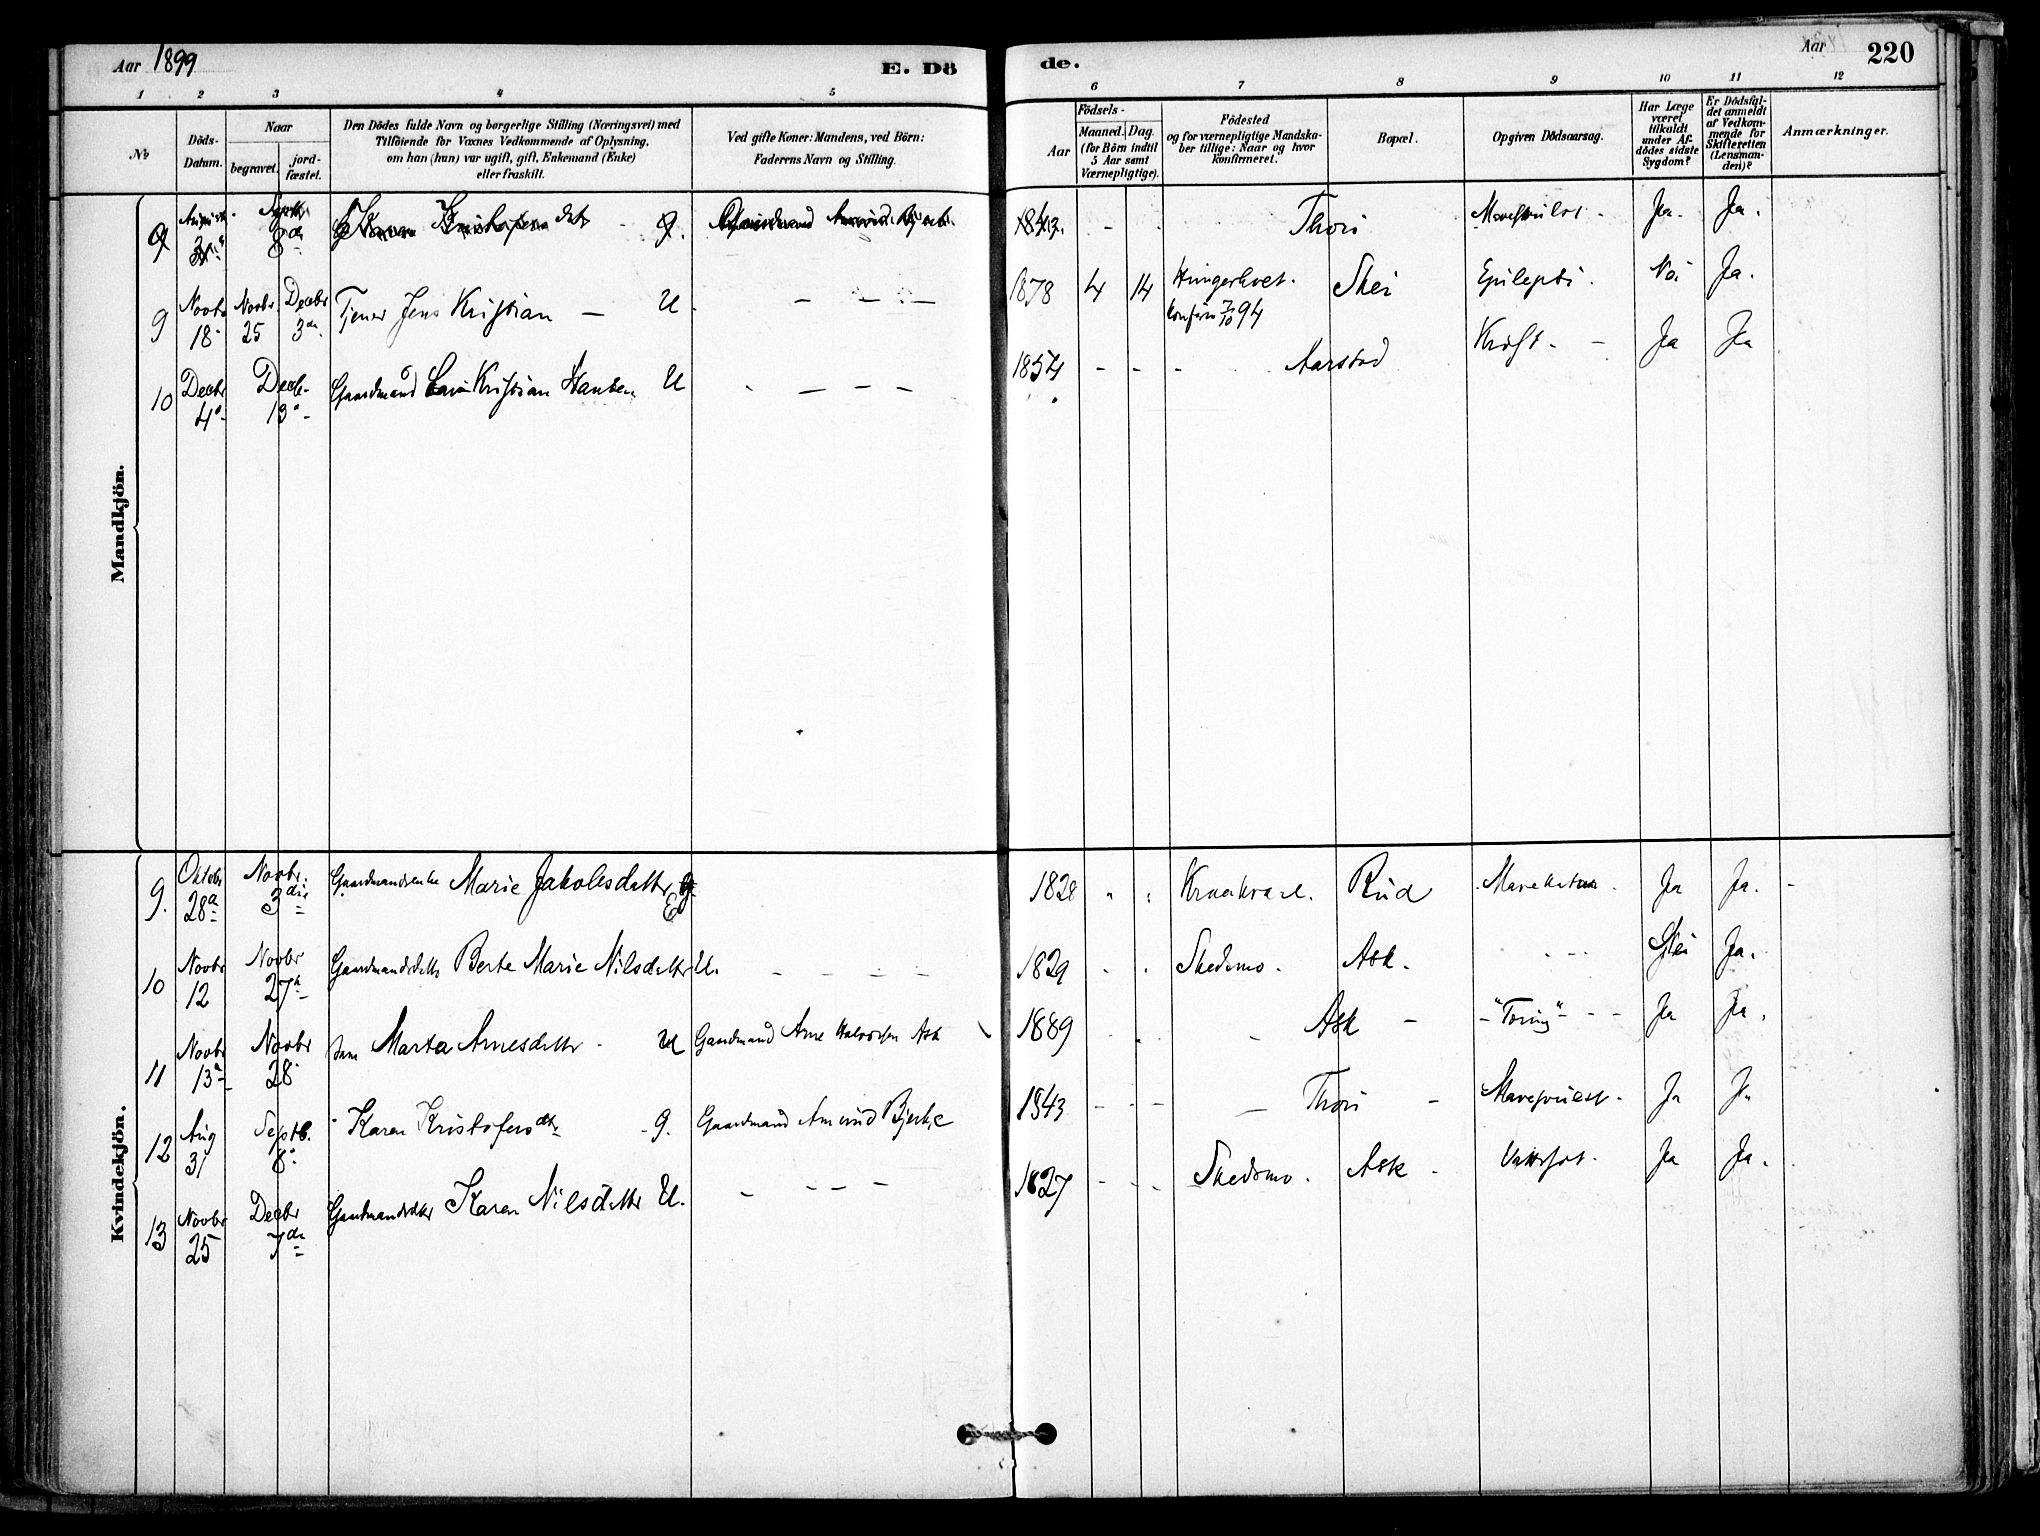 Aar 1899
E. Dö
de.
Aar
220
1 2 3 4 5 6 7 8 9 10 11 12
No
Döds-
Datum.
Naar
begravet.
jord-
fæstet.
Den Dödes fulde Navn og borgerlige Stilling (Næringsvei) med
Tilföiende for Voxnes Vedkommende af Oplysning,
om han (hun) var ugift, gift, Enkemand (Enke)
eller fraskilt.
Ved gifte Koner: Mandens, ved Börn:
Faderens Navn og Stilling.
Födsels-
Aar
Maaned. Dag
(for Börn indtil
5 Aar samt
Værnepligtige).
Födested
og for værnepligtige Mandska-
ber tillige: Naar og hvor
konfirmeret.
Bopæl.
Opgiven Dödsaarsag.
Har Læge
været
tilkaldt
under Af-
dödes sidste
Sygdom?
Er Dödsfal-
det anmeldt
af Vedkom-
mende for
Skifteretten
(Lensman-
den)?
Anmærkninger.
Mandkjön.
9 August 31 Septbr 8de Karen Kristofersdt g. Gaardmand Amund Bjerke 1843. Thori Ja. Ja.
9 Novbr 18 Novbr 25 Decbr 3de Tjener Jens Kristian — U. — — — 1878 4 14 Hungerhvet. Konfirm 7/10 94 Skei Epilepsi. Nei Ja.
10 Decbr 4 Decb. 13 Gaardmand Kristian Hansen U - — — — 1854 - - - Aarstad Kræft - - Ja Ja
Kvindekjön.
9. Oktobr 28 Novbr. 3die Gaardmandsenke Marie Jakobsdatter E 1828 Kraakvael. Rud Ja Ja. -
10 Novbr 12 Novbr 27 Gaardmandsdatter Berte Marie Nilsdatter U. - - - - 1829 Skedsmo. Ask. Nei Ja.
11 Novbr 13 Novbr 28 Marta Arnesdatter - U Gaardmand Arne Halvorsen Ask 1889 - Ask - - "Toring" - - Ja Ja.
12 Aug 31 Septb. 8 - Karen Kristofersdtr - g. Gaardmand Amund Bjerke 1843 - - - — Thori - Ja Ja
13 Novbr 25 Decbr 7de Gaardmandsdtr Karen Nilsdatter U. - - - - 1827 - - - Skedsmo. Ask - Vattersot. Ja Ja.